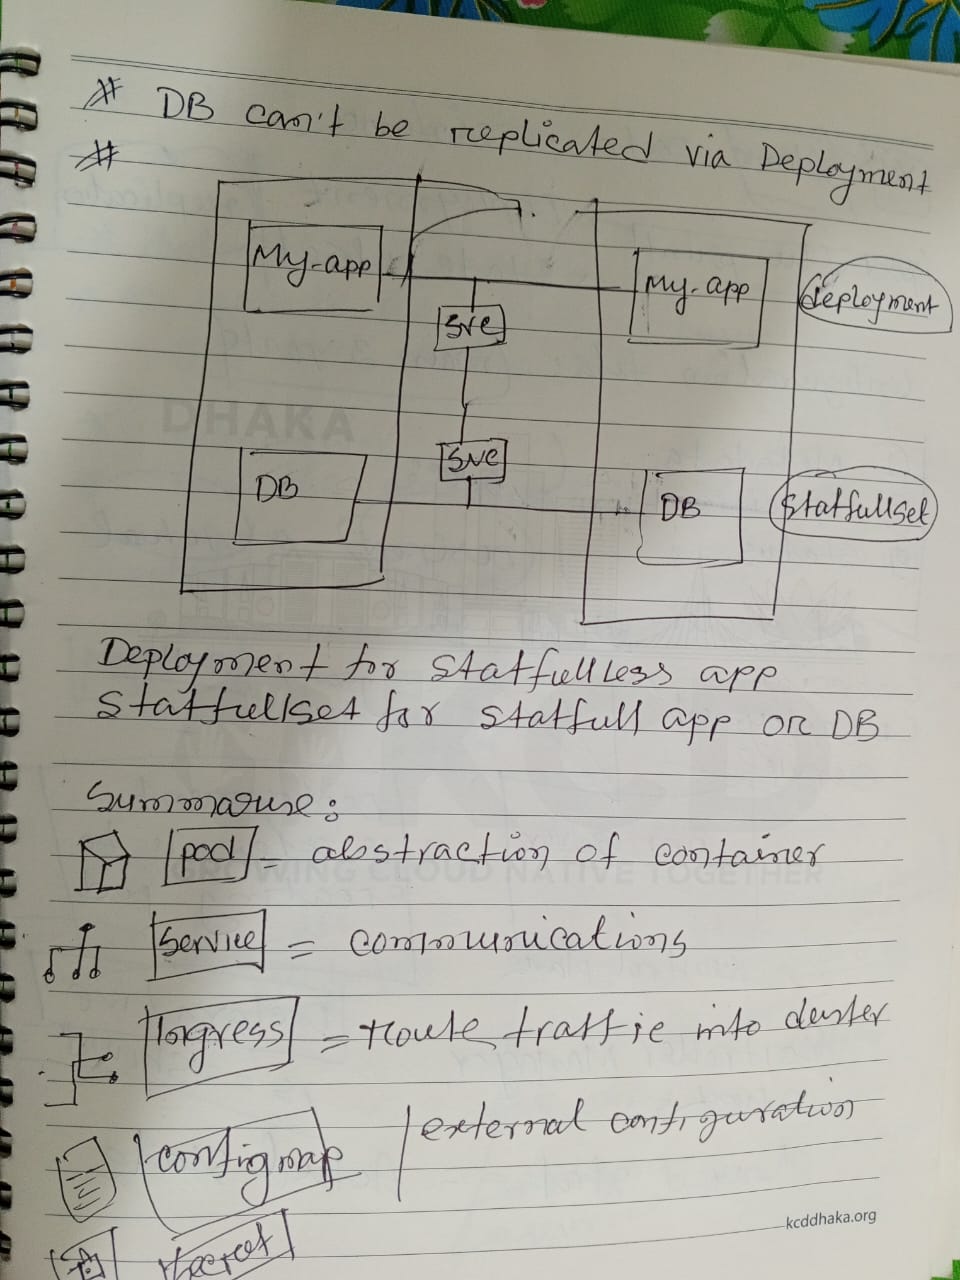 # DB can't be replicated via Deployment
#
My-app
My-app
deployment
svc
svc
DB
DB
statfullset
DHAKA
Deployment for statfullless app
statfullset for statfull app or DB
Summarise:
pod = abstraction of container
GROWING CLOUD NATIVE TOGETHER
service = communications
Ingress = route traffic into cluster
configmap / external configuration
secret
kcddhaka.org